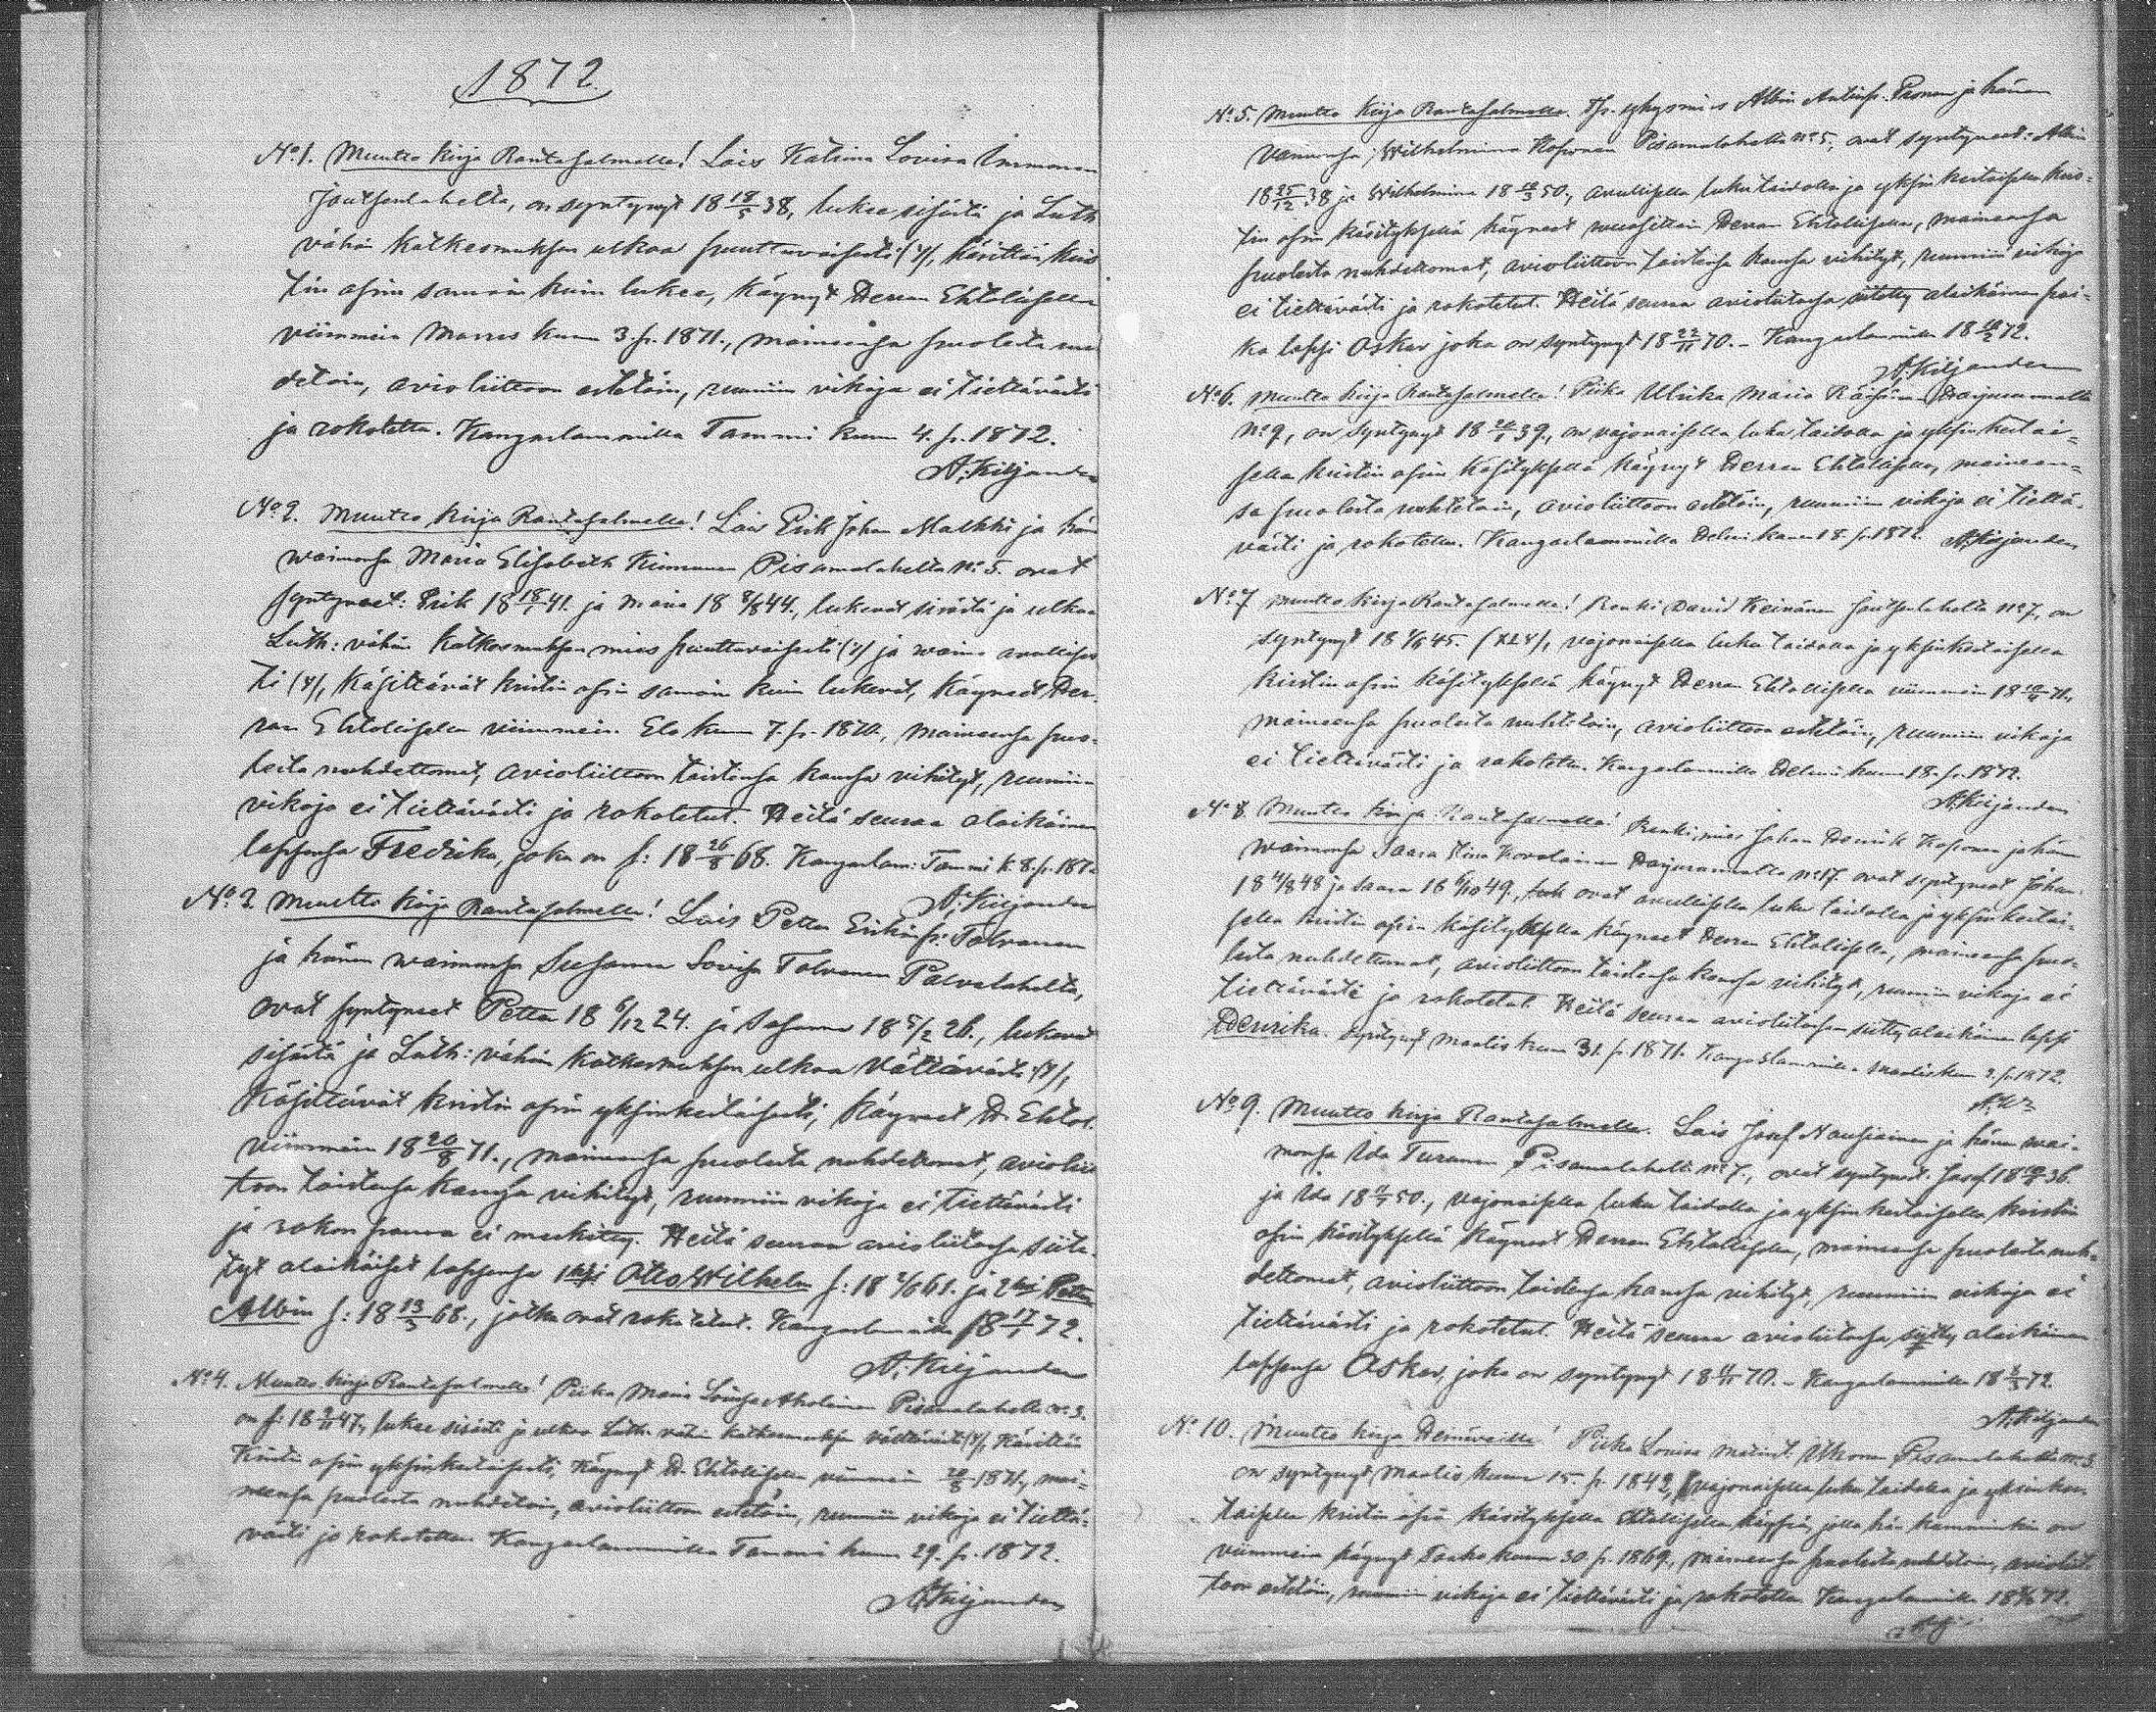 1872.
No 1. Muutto kirja Rantasalmelle! Lois Katrina Lovisa Immonen
Joutsenlahelta, on syntynyt 18 18/5 38, lukee sisästä ja Luth
vähän katkesmuksen ulkoa puuttuvaisesti (v), käsittää kris
tin opin samoin kuin lukee, käynyt Herran Ehtolisella
viimmein Marras kuun 3. p. 1871., maineensa puolesta nuh
detoin, avioliittoon estetöin, ruumiin vikoja ei tiettävästi
ja rokotettu. Kangaslammilla Tammi kuun 4. p. 1872.
A. Kiljander
No 2. Muutto kirja Rantasalmelle! Lois Erik Johan Malkki ja hän
waimonsa Maria Elisabeth Kinnunen Pisamalahelta No 5. ovat
syntyneet: Erik 18 18/1 41. ja Maria 18 8/8 44., lukevat sisästä ja ulkoa
Luth: vähän Katkesmuksen mies puuttuvaisesti (v) ja waimo avullises
ti (v), käsittävät kristin opin samoin kuin lukevat, käyneet Her-
ran Ehtolisella viimmein Elo kuun 7. p. 1870., maineensa puo-
lesta nuhdettomat, avioliittoon toistensa kanssa vihityt, ruumiin
vikoja ei tiettävästi ja rokotetut. Heitä seuraa alaikäinen
lapsensa Fredrika, joka on s: 18 26/8 68. Kangaslam: Tammi k. 8. p. 187
A. Kiljander
No 3. Muutto kirja Rantasalmelle! Lois Petter Erikinp: Tolvanen
ja hänen waimonsa Susanna Lovisa Tolvanen Palvalahelta,
ovat syntyneet Petter 18 6/12 24. ja Susanna 18 5/2 26., lukevat
sisästä ja Luth: vähän Katkesmuksen ulkoa Vältävästi (v),
Käsittävät kristin opin yksinkertaisesti, käyneet H. Ehtol.
viimmein 18 20/8 71., maineensa puolesta nuhdettomat, aviolii
toon toistensa kanssa vihityt, ruumiin vikoja ei tiettävästi
ja rokon panoa ei merkitty. Heitä seuraa avioliitossa siite-
tyt alaikäiset lapsensa 1ksi Otto Wilhelm s: 18 61. ja 2ksi Petter
Albin s: 18 13/3 68., jotka ovat rokotetut. Kangaslammilla 18 17/1 72.
A. Kiljander
No 4. Muutto kirja Rantasalmelle! Piika Maria Lovisa Aholainen Pisamalahelta No 3.
on s: 18 47., lukee sisästä ja ulkoa Luth. vähän katkesmuksen vältävästi (v), käsittää
Kristin opin yksinkertaisesti, käynyt H. Ehtolisella viimmein 1871., mai-
neensa puolesta nuhdetoin, avioliittoon estetöin, ruumiin vikoja ei tiettä-
västi ja rokotettu. Kangaslammilla Tammi kuun 29. p. 1872.
A. Kiljander
No 5. Muutto kirja Rantasalmelle. Albin Antinp. Paanen ja hänen
Vaimonsa Wilhelmina Koponen Pisamalahelta No 5, ovat syntyneet: Albin
18 25/12 38 ja Wilhelmina 18 50., avullisella lukutaidolla ja yksin kertaisella kris-
tin opin käsityksellä käyneet Herran Ehtolisella, maineensa
puolesta nuhdettomat, avioliittoon toistensa kanssa vihityt, ruumiin vikoja
ei tiettävästi ja rokotetut. Heitä seuraa avioliitossa siitetty alaikäinen poi-
ka lapsi Oskar joka on syntynyt 18 22/11 70. - Kangaslammilla 18 72.
A. Kiljander
No 6. Muutto kirja Rantasalmelle! Piika Ulrika Maria Räisänen Harjurannalta
No 9, on syntynyt 18 39., on vajonaisella luku taidolla ja yksin kertai-
sella kristin opin käsityksellä käynyt Herran Ehtolisella, maineen-
sa puolesta nuhtetoin, avioliittoon estetöin, ruumiin vikoja ei tiettä-
västi ja rokotettu. Kangaslammilla Helmi kuun 18. p. 1872. A. Kiljander
No 7 Muutto kirja Rantasalmelle! Renki David Keinänen Joutsenlahelta No 7, on
syntynyt 18 45. vajonaisella luku taidolla ja yksinkertaisella
kristin opin käsityksellä käynyt Herran Ehtolisella viimmein 18 71,
maineensa puolesta nuhtetoin, avioliittoon estetöin, ruumiin vikoja
ei tiettävästi ja rokotettu. Kangaslammilla Helmi kuun 18. p. 1872.
A. Kiljander
No 8. Muutto kirja Rantasalmelle! Renki mies Johan Henrik Koponen ja hänen
waimonsa Saara Stina Kovalainen Harjurannalta No 17. ovat syntyneet Johan
18 4/8 48 ja Saara 18 6/10 49., ovat avullisella luku taidolla ja yksinkertai-
sella kristin opin käsityksellä käyneet Herran Ehtolisella, maineensa puo-
lesta nuhdettomat, avioliittoon toistensa kanssa vihityt, ruumiin vikoja ei
tiettävästi ja rokotetut. Heitä seuraa avioliitossa siitetty alaikäinen lapsi
Henrika. syntynyt Maalis kuun 31. p. 1871. Kangaslammilla Maaliskuun 2. p. 1872.
No 9. Muutto kirja Rantasalmelle. Lois Josef Nousiainen ja hänen wai-
monsa Ida Turunen Pisamalahelta No 7., ovat syntyneet. Josef 18 36.
ja Ida 18 50., vajonaisella luku taidolla ja yksinkertaisella kristin
opin käsityksellä käyneet Herran Ehtolisella, maineensa puolesta nuh-
dettomat, avioliittoon toistensa kanssa vihityt, ruumiin vikoja ei
tiettävästi ja rokotetut. Heitä seuraa avioliitossa siitetty alaikäinen
lapsensa Oskar, joka on syntynyt 18 70. - Kangaslammilla 18 72.
A. Kiljander
No 10. Muutto kirja Heinävedelle! Piika Lovisa Ukonen Pisamalahelta No 3
on syntynyt Maalis kuun 15. p. 1842, vajonaisella luku taidolla ja yksinker
taisella kristin opin käsityksellä Ehtolisella käypä, jolla hän on
viimmein käynyt Touko kuun 30. p. 1869., maineensa puolesta nuhtetoin, avioliit
toon estetöin, ruumiin vikoja ei tiettävästi ja rokotettu Kangaslammilla 18 72.